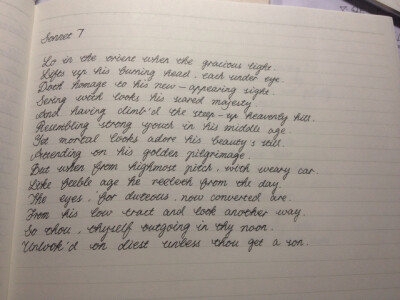 Sonnet 7
Lo in the orient when the gracious light.
Lifts up his burning head, each under eye
Doth homage to his new-appearing sight.
Sering with looks his sacred majesty.
And having climb'd the steep-up heavenly hill.
Resembling strong youth in his middle age.
Yet mortal looks adore his beauty still.
Attending on his golden pilgrimage.
But when from highmost pitch, with weary car.
Like feeble age he reeleth from the day.
The eyes, for duteous, now converted are.
From his low tract and look another way.
So thou, thyself outgoing in thy noon.
Unlook'd on diest unless thou get a son.